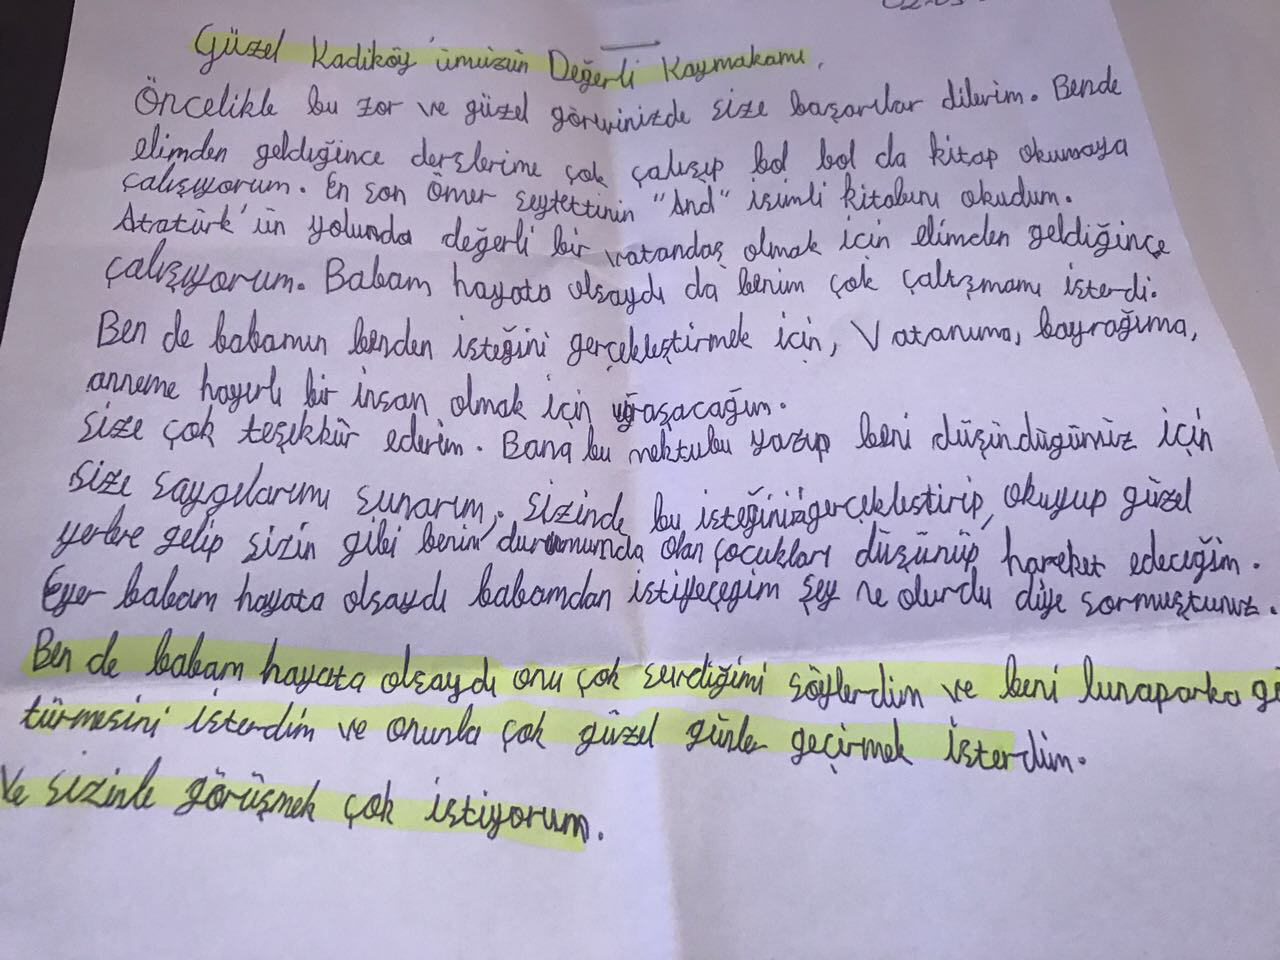 Güzel Kadıköy'ümüzün Değerli Kaymakamı,
Öncelikle bu zor ve güzel görevinizde size başarılar dilerim. Bende
elimden geldiğince derslerime çok çalışıp bol bol da kitap okumaya
çalışıyorum. En son Ömer Seytettinin "And" isimli kitabını okudum.
Atatürk'ün yolunda değerli bir vatandaş olmak için elimden geldiğince
çalışıyorum. Babam hayata olsaydı da benim çok çalışmamı isterdi.
Ben de babamın benden isteğini gerçekleştirmek için, Vatanıma, bayrağıma,
anneme hayırlı bir insan olmak için uğraşacağım.
Size çok teşekkür ederim. Bana bu mektubu yazıp beni düşündüğünüz için
size saygılarımı sunarım, sizinde bu isteğinizi gerçekleştirip, okuyup güzel
yerlere gelip sizin gibi benim durumumda olan çocukları düşünüp hareket edeceğim.
Eyer babam hayata olsaydı babamdan istiyeceğim şey ne olurdu diye sormuştunuz.
Ben de babam hayata olsaydı onu çok sevdiğimi söylerdim ve beni lunaparka gö
türmesini isterdim ve onunla çok güzel günler geçirmek isterdim.
Ve sizinle görüşmek çok istiyorum.